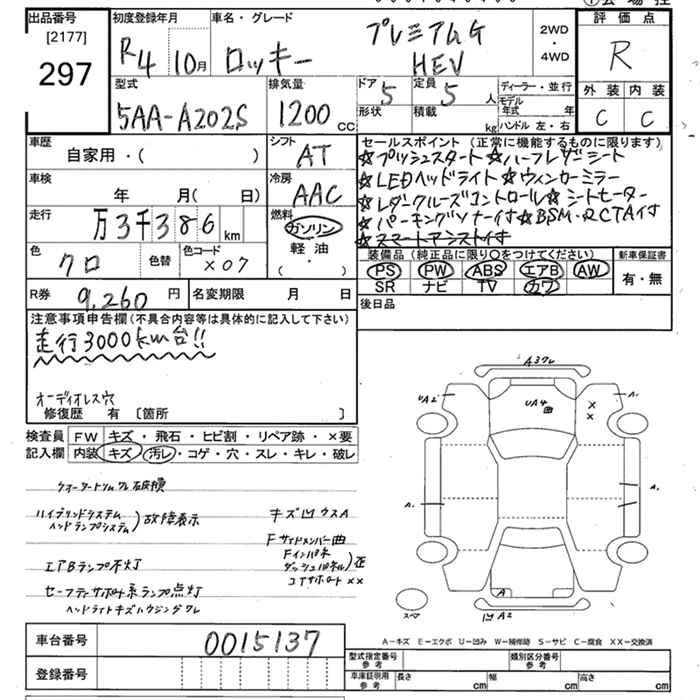 出品番号
[2177]
297
初度登録年月
R4 10月
車名・グレード
ロッキー
プレミアムG
HEV
2WD
・
4WD
評価点
R
外装 内装
C C
型式
5AA-A202S
排気量
1200 CC
ドア 5
定員 5 人
形状
積載 kg
ディーラー・並行
モデル年式 年
ハンドル 左・右
車歴
自家用・( )
シフト
AT
車検
年 月( 日)
冷房
AAC
走行
万3千386 km
燃料
ガソリン
軽油
( ・ )
色
クロ
色替
色コード
X07
セールスポイント (正常に機能するものに限ります)
☆プッシュスタート☆ハーフレザーシート
☆LEDヘッドライト☆ウィンカーミラー
☆レダークルーズコントロール☆シートヒーター
☆パーキングソナー付☆BSM・RCTA付
☆スマートアシスト付
装備品 (純正品に限り○をつけてください)
PS PW ABS エアB AW
SR ナビ TV カワ
新車保証書
有・無
R券 9,260 円
名変期限 月 日
後日品
注意事項申告欄(不具合内容等は具体的に記入して下さい)
走行3000km台!!
オーディオレス穴
修復歴 有 〔箇所 〕
検査員記入欄
FW キズ・飛石・ヒビ割・リペア跡・×要
内装 キズ・汚レ・コゲ・穴・スレ・キレ・破レ
クォータートリムクレ破損
ハイブリッドシステム
ヘッドランプシステム)故障表示
エアBランプ不灯
セーフティサポート系ランプ点灯
ヘッドライトキズハウジングワレ
キズ凹ウスA
Fサイドメンバー曲
Fインパネ
ダッシュパネル)歪
コアサポート××
A3ワレ
UA2
UA4
曲
A1
×
×
A1
A1
A
スペア
凹A2
A-キズ E-エクボ U-凹み W-補修跡 S-サビ C-腐食 XX-交換済
車台番号
0015137
登録番号
型式指定番号
参考
類別区分番号
参考
車庫証明用
参考
長さ cm
幅 cm
高さ cm